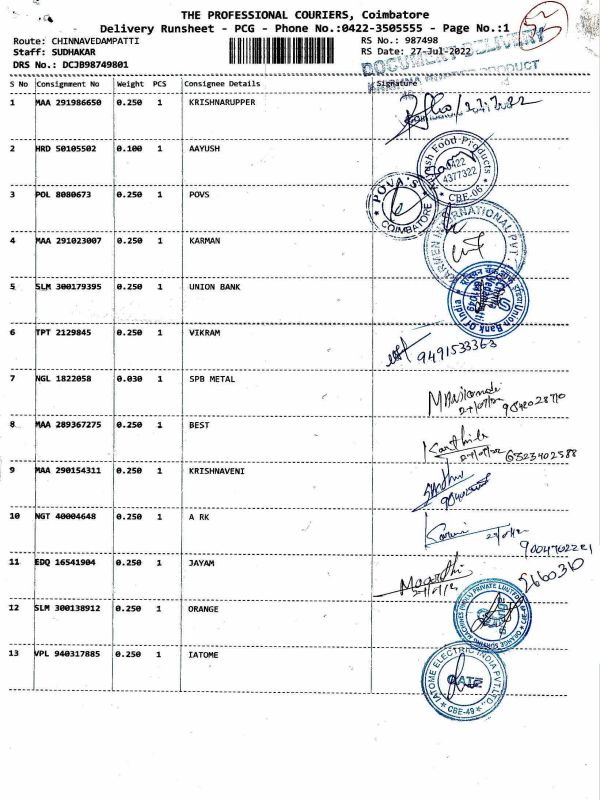 THE PROFESSIONAL COURIERS, Coimbatore
Delivery Runsheet - PCG - Phone No.:0422-3505555 - Page No.:1
Route: CHINNAVEDAMPATTI
RS No.: 987498
Staff: SUDHAKAR
RS Date: 27-Jul-2022
DRS No.: DCJB98749801
DOCUMENT DELIVERY
S No Consignment No Weight PCS Consignee Details Signature
1 MAA 291986650 0.250 1 KRISHNARUPPER
2 HRD 50105502 0.100 1 AAYUSH
Food Products
0422
4377322
CBE-06
3 POL 8080673 0.250 1 POVS
POVA'S
COIMBATORE
4 MAA 291023007 0.250 1 KARMAN
INTERNATIONAL PVT
5 SLM 300179395 0.250 1 UNION BANK
Union Bank Of India
6 TPT 2129845 0.250 1 VIKRAM
9491533363
7 NGL 1822058 0.030 1 SPB METAL
27/07/22
8 MAA 289367275 0.250 1 BEST
Kanthida
27/07/22 6323402588
9 MAA 290154311 0.250 1 KRISHNAVENI
10 NGT 40004648 0.250 1 A RK
11 EDQ 16541904 0.250 1 JAYAM
2660310
12 SLM 300138912 0.250 1 ORANGE
PRIVATE LIMITED
13 VPL 940317885 0.250 1 IATOME
IATOME ELECTRIC INDIA PVT.LTD.
CBE-49